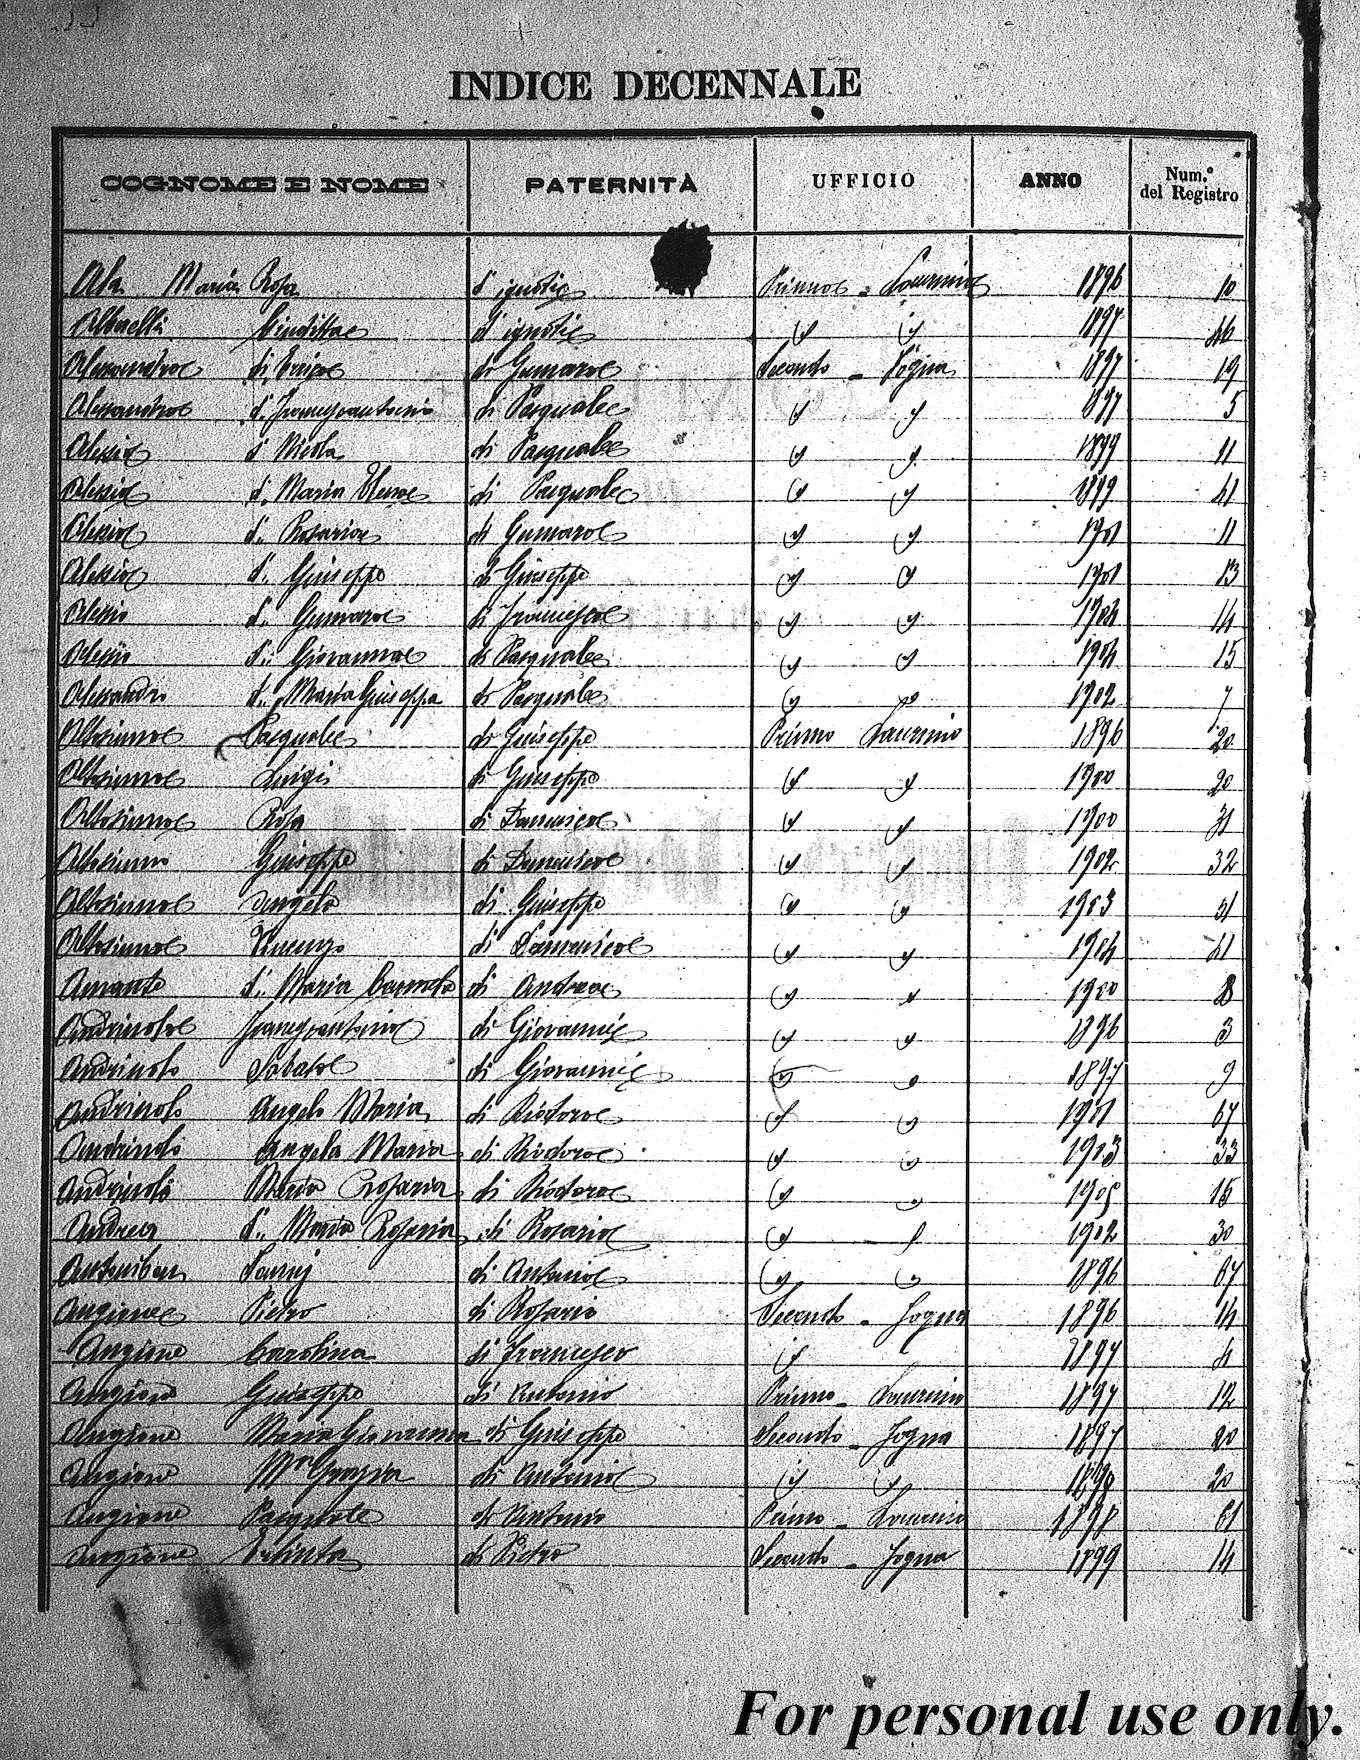 INDICE DECENNALE
COGNOME E NOME PATERNITÀ UFFICIO ANNO Num.º del Registro
Maria Rosa d'ignoti Primo - Laurino 1896 10
d'ignoti " " 1897 46
Alessandro di Gennaro Secondo - Fogna 1897 19
Alessandro d. Francescantonio di Pasquale " " 1897 5
Alessio d. Nicola di Pasquale " " 1899 11
Alessio d. Maria di Pasquale " " 1899 41
Alessio d. Rosaria di Gennaro " " 1901 11
Alessio d. Giuseppe di Giuseppe " " 1901 13
Alessio d. Gennaro di Francesco " " 1904 14
Alessio d. Giovanna di Pasquale " " 1904 15
Alessandro d. Maria Giuseppa di Pasquale " " 1902 7
Altosinno Pasquale di Giuseppe Primo Laurino 1896 20
Altosinno Luigi di Giuseppe " " 1900 20
Altosinno Rosa di Domenico " " 1900 31
Altosinno Giuseppe di Domenico " " 1902 32
Altosinno Angelo di Giuseppe " " 1903 31
Altosinno Vincenzo di Domenico " " 1904 41
Amante d. Maria Carmela di Andrea " " 1900 8
Andrinolo Francescantonio di Giovanni " " 1896 3
Andrinolo Sabato di Giovanni " " 1897 9
Andrinolo Angelo Maria di Riodoro " " 1901 67
Andrinolo Angela Maria di Riodoro " " 1903 33
Andrinolo Maria Rosaria di Riodoro " " 1905 16
Andrea d. Maria Rosaria di Rosario " " 1902 30
di Antonio " " 1896 67
Angione Pietro di Rosario Secondo - Fogna 1896 14
Angione Carolina di Francesco " 1897 4
Angione Giuseppe di Antonio Primo - Laurino 1897 12
Angione Maria Giovanna di Giuseppe Secondo - Fogna 1897 20
Angione Mª Grazia di Antonio " " 20
Angione Pasquale di Antonio Primo - Laurino 1898 61
Angione di Pietro Secondo - Fogna 1899 14
For personal use only.